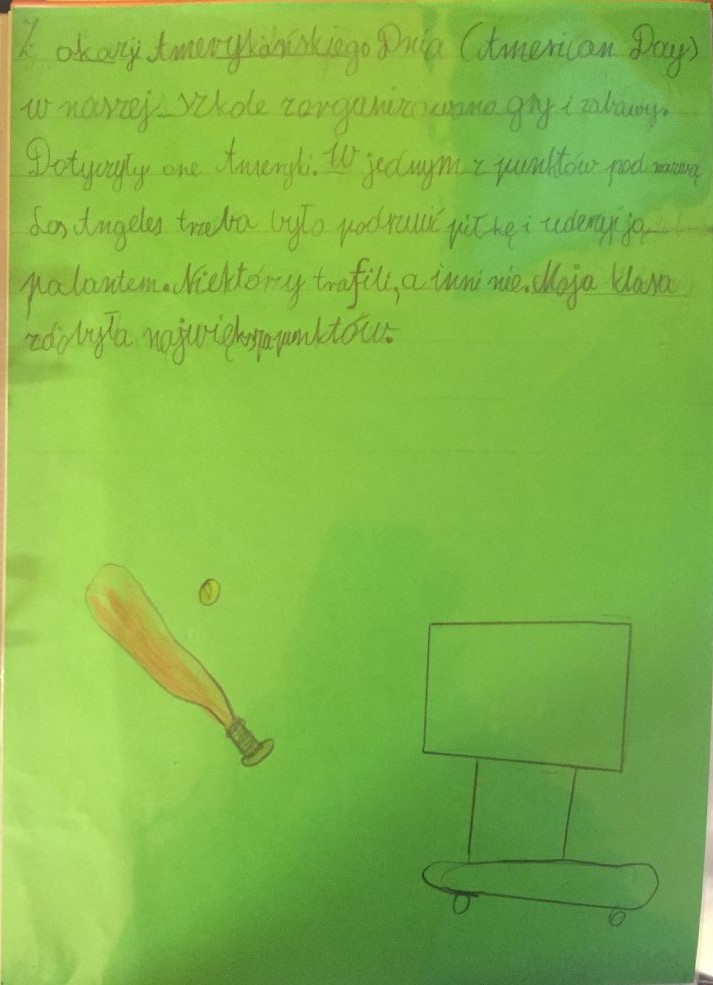 Z okazji Amerykańskiego Dnia (American Day)
w naszej szkole zorganizowano gry i zabawy.
Dotyczyły one Ameryki. W jednym z punktów pod nazwą
Los Angeles trzeba było podrzucić piłkę i uderzyć ją
palantem. Niektórzy trafili, a inni nie. Moja klasa
zdobyła najwięk punktów.